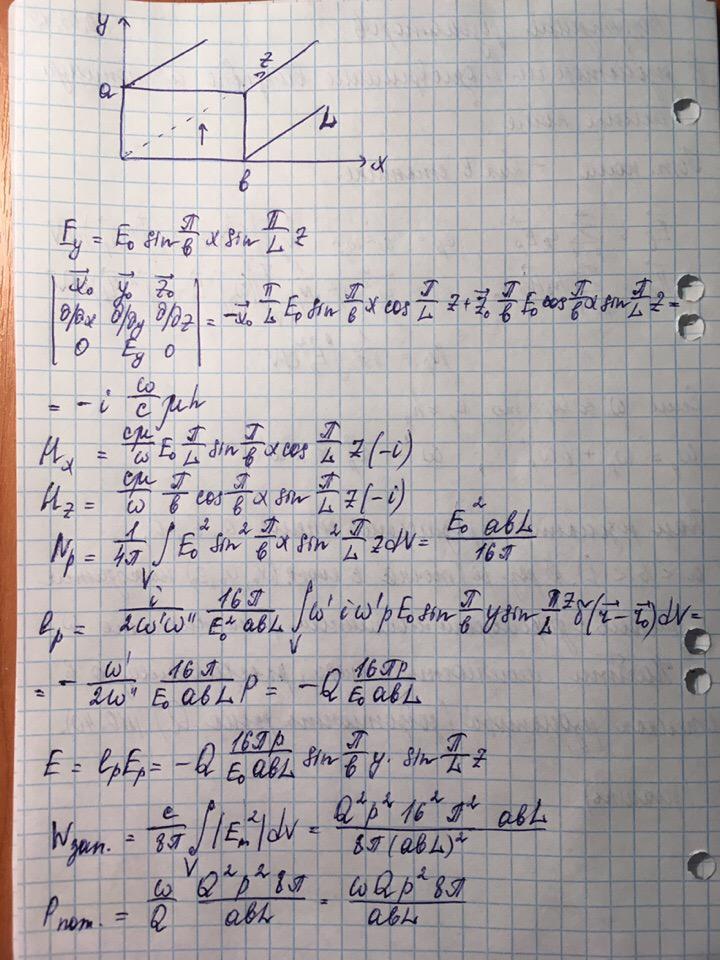 y
a
z
L
x
b
E_y = E_0 sin π/b x sin π/L z
| x⃗_0 y⃗_0 z⃗_0 |
| ∂/∂x ∂/∂y ∂/∂z | = -x⃗_0 π/L E_0 sin π/b x cos π/L z + z⃗_0 π/b E_0 cos π/b x sin π/L z =
| 0 E_y 0 |
= -i ω/c μh
H_x = cμ/ω E_0 π/L sin π/b x cos π/L z (-i)
H_z = cμ/ω π/b cos π/b x sin π/L z (-i)
N_p = 1/4π ∫_V E_0² sin² π/b x sin² π/L z dV = E_0² abL / 16π
b_p = i/2ω'ω'' 16π/E_0² abL ∫_V ω' i ω' p E_0 sin π/b y sin π/L z δ(r⃗ - r⃗_0) dV =
= - ω'/2ω'' 16π/E_0 abL p = -Q 16πp/E_0 abL
E = b_p E_p = -Q 16πp/E_0 abL sin π/b y · sin π/L z
W_зап. = c/8π ∫_V |E_m²| dV = Q² p² 16² π² abL / 8π(abL)²
P_пот. = ω/Q Q² p² 8π/abL = ωQp² 8π/abL